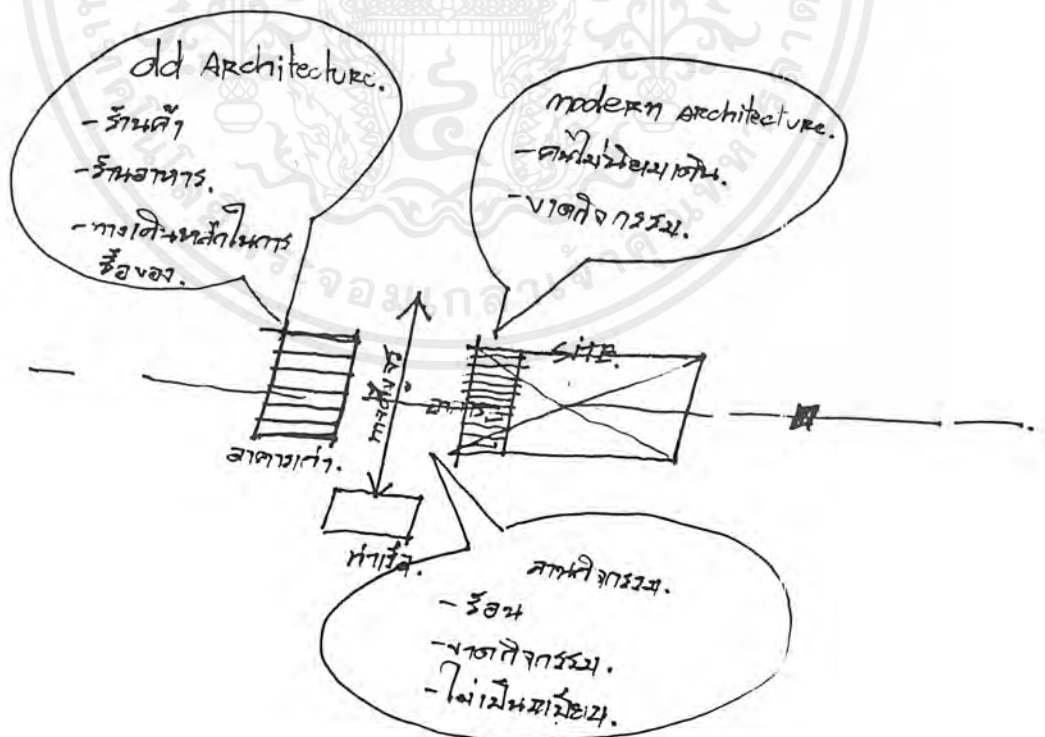 old Architecture.
- ร้านค้า
- ร้านอาหาร.
- ทางเดินหลักในการ
ซื้อของ.
modern architecture.
- คนไม่นิยมเดิน.
- ขาดกิจกรรม.
SITE.
อาคารเก่า.
ท่าเรือ.
ลานกิจกรรม.
- ร้อน
- ขาดกิจกรรม.
- ไม่เป็นระเบียบ.